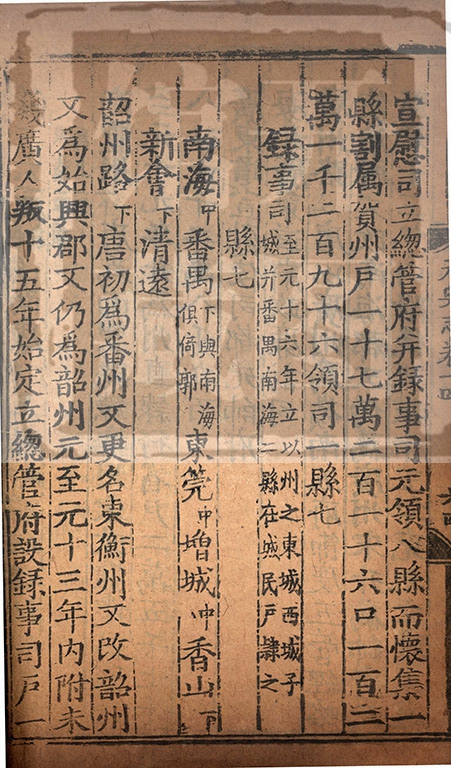 宣慰司立總管府并録事司元領八縣而懷集一
縣割属賀州户一十七萬二百一十六口一百二
萬一千二百九十六領司一縣七
録事司至元十六年立以州之東城西城子城并番禺南海二縣在城民户隷之
縣七
南海中番禺下與南海俱倚郭東莞中增城中香山下
新會下清遠
韶州路下唐初爲番州又更名東衡州又改韶州
又爲始興郡又仍爲韶州元至元十三年内附未
幾廣人叛十五年始定立總管府設録事司户一